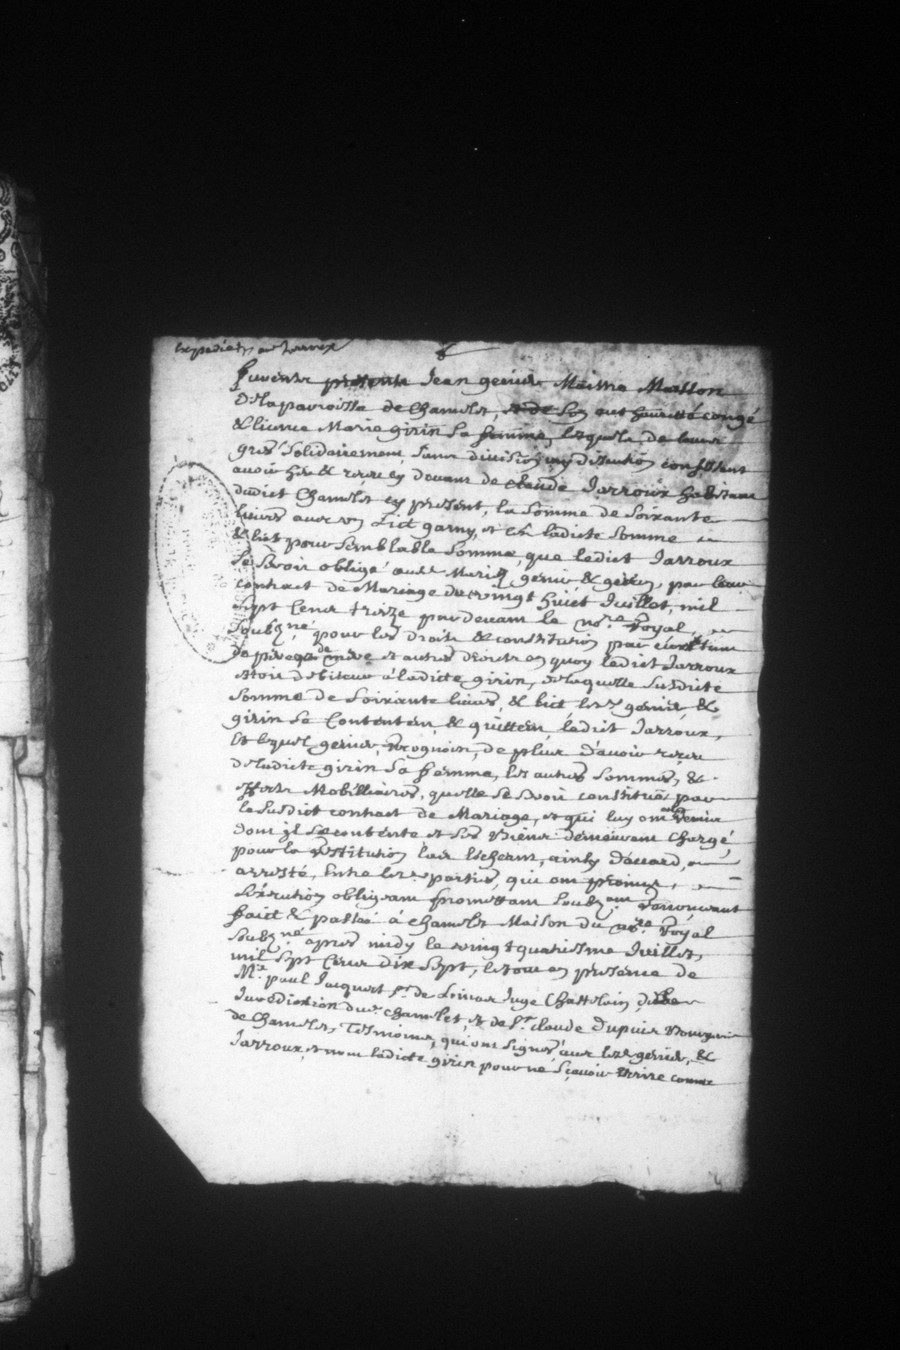 expedié au Jarroux
furent presents Jean genier Maitre Masson
De la parroisse de Chamelet, & de son authorité congé
& licence Marie girin sa femme, lesquels de leurs
grés solidairement sans division ny discution confessent
avoir heu & receu cy devant de claude Jarroux habitant
dudict Chamelet cy present, la somme de soixante
livres avec un Lict garny, et est ladicte somme
& lict pour semblable somme que ledict Jarroux
se seroit obligé aud. Mariés genier & girin, par leur
contract de Mariage du vingt huict Juillet, mil
sept Cens treize pardevant le no.re Royal
soubz.né pour les droits & constitution par
de mere et autres droits en quoy ledict Jarroux
estoit debiteur à ladicte girin, de laquelle susdicte
somme de soixante livres, & lict les genier &
girin se Contentent, & quittent ledict Jarroux,
Et lequel genier, recognoit, de plus d'avoir receu
de ladicte girin sa femme, les autres sommes, &
effects Mobilliaires, quelle se seroit constitués par
le susdict contract de Mariage, et qui luy ont
dont jl se contente et ses Biens demeurant Chargé,
pour la restitution leur escheant, ainsy d'accord,
arresté, Entre les parties, qui ont promis,
L'éxécution obligeant promettant soubz.ant Renonceant
faict & passé à chamelet Maison du no.re Royal
soubz.né apres midy le vingt quatriesme Juillet,
mil sept Cens dix sept, le tout en presence de
M.e paul Jacquet s.r de Juge Chastelain de la
Jurisdiction du chamelet, et de s.r claude dupuis Bourgeois
de Chamelet, Tesmoins, qui ont signés avec les genier, &
Jarroux, et non ladicte girin pour ne sçavoir Escrire comme